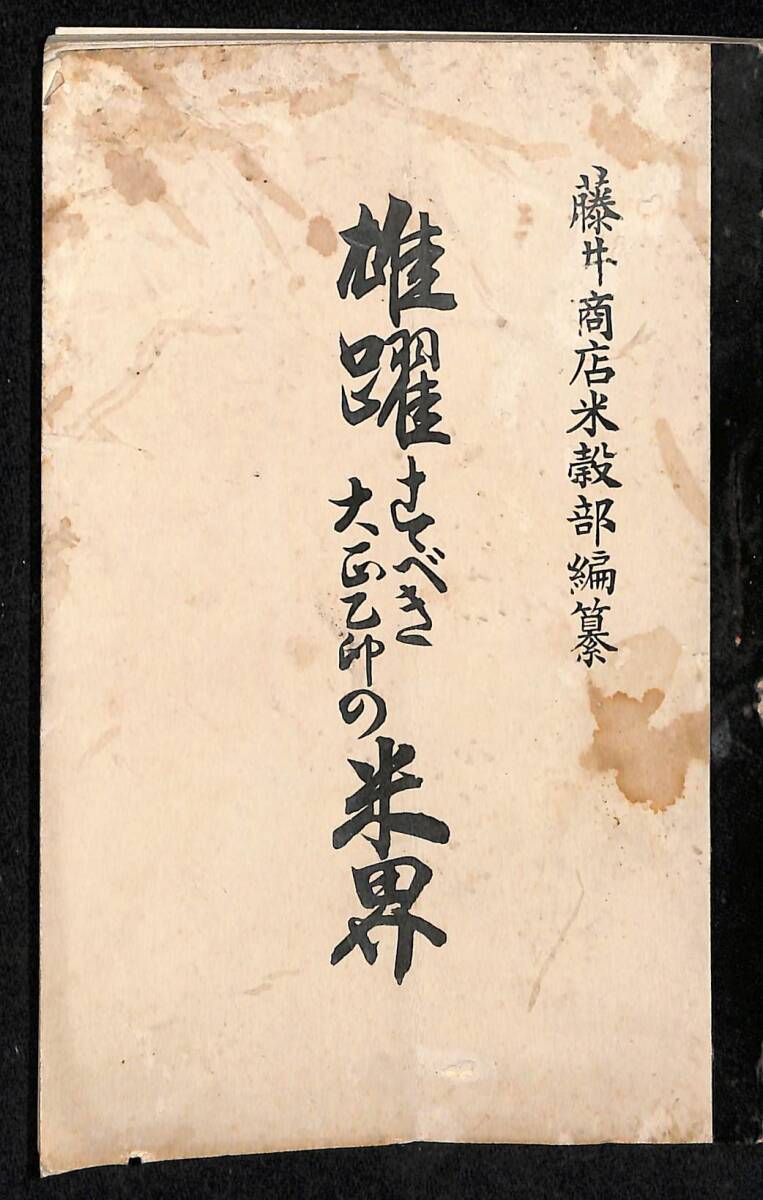 藤井商店米穀部編纂
雄躍すべき
大正乙卯の米界